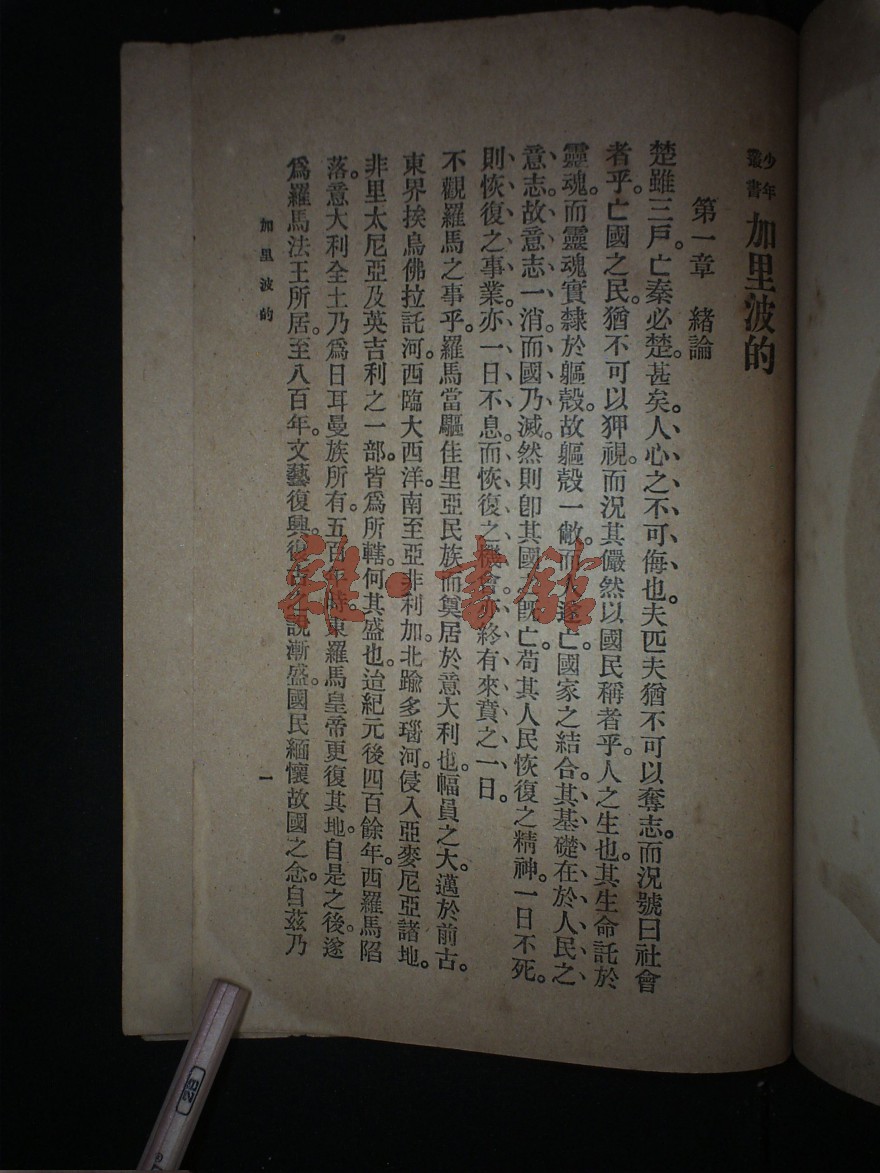 少年叢書 加里波的
第一章 緒論
楚雖三戶。亡秦必楚。甚矣。人心之不可侮也。夫匹夫猶不可以奪志。而況號曰社會
者乎。亡國之民。猶不可以狎視。而況其儼然以國民稱者乎。人之生也。其生命託於
靈魂。而靈魂實隸於軀殼。故軀殼一敝。而大遂亡。國家之結合。其基礎在於人民之
意志。故意志一消。而國乃滅。然則卽其國旣亡。苟其人民恢復之精神。一日不死。
則恢復之事業。亦一日不息。而恢復之機會。亦終有來賁之一日。
不觀羅馬之事乎。羅馬當驅佳里亞民族而奠居於意大利也。幅員之大。邁於前古。
東界挨烏佛拉託河。西臨大西洋。南至亞非利加。北踰多瑙河。侵入亞麥尼亞諸地。
非里太尼亞及英吉利之一部。皆爲所轄。何其盛也。迨紀元後四百餘年。西羅馬陷
落。意大利全土乃爲日耳曼族所有。五百年時。東羅馬皇帝更復其地。自是之後。遂
爲羅馬法王所居。至八百年。文藝復興。復古之說漸盛。國民緬懷故國之念。自茲乃
加里波的
一
雜·書館
28